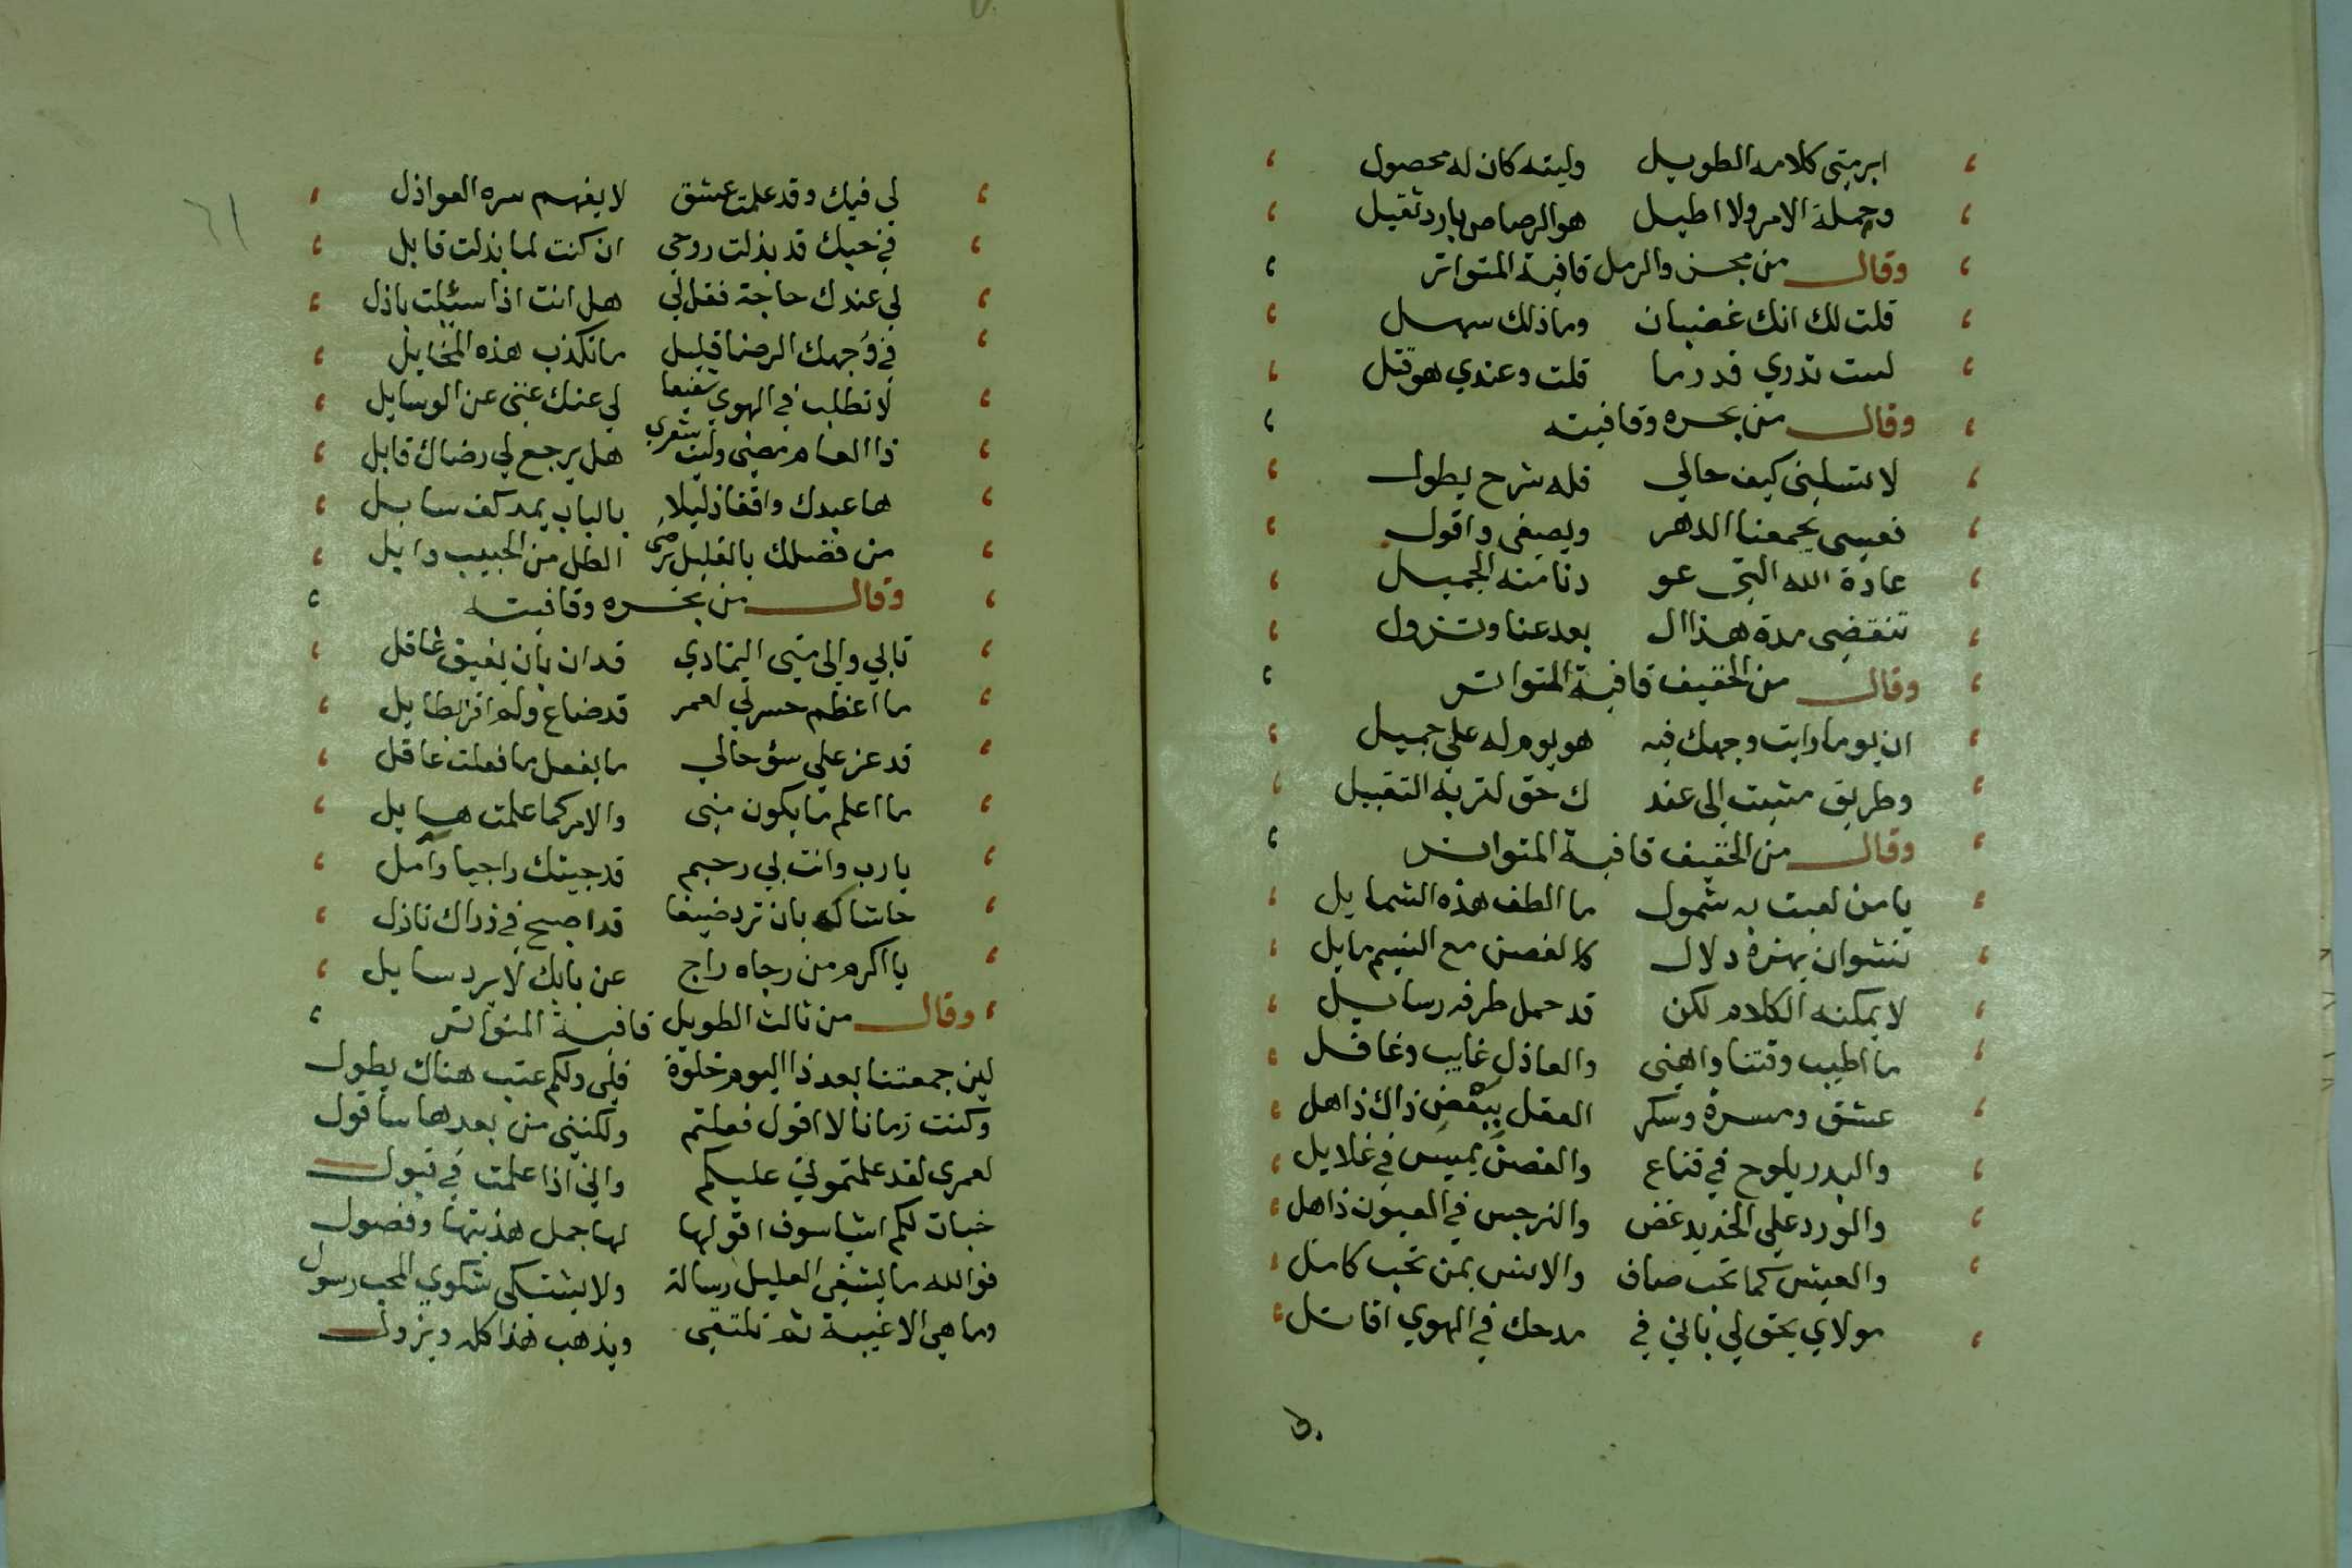 ابرمتنى كلامه الطويل وليته كان له محصول
وجملة الامر ولا اطيل هو الرصاص بارد ثقيل
وقال من مجزو الرمل قافية المتواتر
قلت لك انك غضبان وماذلك سهل
لست تدري قدر ما قلت وعندي هو قتل
وقال من بحره وقافيته
لا تسلنى كيف حالي فله شرح يطول
فعسى يجمعنا الدهر ويصغى واقول
عادة الله التى عو دنا منه الجميل
تنقضى مدة هذا ال بعد عنا وتزول
وقال من الخفيف قافية المتواتر
ان يوما رايت وجهك فيه هو يوم له علي جميل
وطريق مشيت الى عند ك حق لتربه التقبيل
وقال من الخفيف قافية المتواتر
يا من لعبت به شمول ما الطف هذه الشمايل
نشوان يهزه دلال كالغصن مع النسيم مايل
لا يمكنه الكلام لكن قد حمل طرفه رسايل
ما اطيب وقتنا واهنى والعاذل غايب وغافل
عشق ومسرة وسكر العقل ببعض ذاك ذاهل
والبدر يلوح في قناع والغصن يميس في غلايل
والورد على الخديد غض والنرجس في العيون ذاهل
والعيش كما تحب صاف والانس بمن تحب كامل
مولاي يحق لي باني في مدحك في الهوي اقاتل
٦١
لي فيك وقد علمت عشق لا يفهم سره العواذل
في حبك قد بذلت روحي ان كنت لما بذلت قابل
لي عندك حاجة فقل لي هل انت اذا سئلت باذل
في وجهك الرضا قليل ما تكذب هذه المخايل
لا تطلب في الهوي شفيعا لي عنك غنى عن الوسايل
ذا العام مضى وليت شعري هل يرجع لي رضاك قابل
ها عبدك واقفا ذليلا بالباب يمد كف سايل
من فضلك بالقليل يرضى الطل من الحبيب وابل
وقال من بحره وقافيته
تابي والى متى التمادي قد ان بان يفيق غافل
ما اعظم حسرتي لعمر قد ضاع ولم افز بطايل
قد عز علي سؤ حالي ما يفعل ما فعلت عاقل
ما اعلم ما يكون منى والامر كما علمت هايل
يا رب وانت بي رحيم قد جيتك راجيا وآمل
حاشاك بان ترد ضيفا قد اصبح في ذراك نازل
يا اكرم من رجاه راج عن بابك لا يرد سايل
وقال من ثالث الطويل قافية المتواتر
لين جمعتنا بعد ذا اليوم خلوة فلى ولكم عتب هناك يطول
وكنت زمانا لا اقول فعلتم ولكننى من بعدها ساقول
لعمرى لقد علمتموني عليكم واني اذا علمت في قبول
خبات لكم اشيا سوف اقولها لها جمل هذبتها وفصول
فوالله ما يشفى العليل رسالة ولا يشتكى شكوي المحب رسول
وما هي الا غيبة ثم نلتقى ويذهب هذا كله ويزول